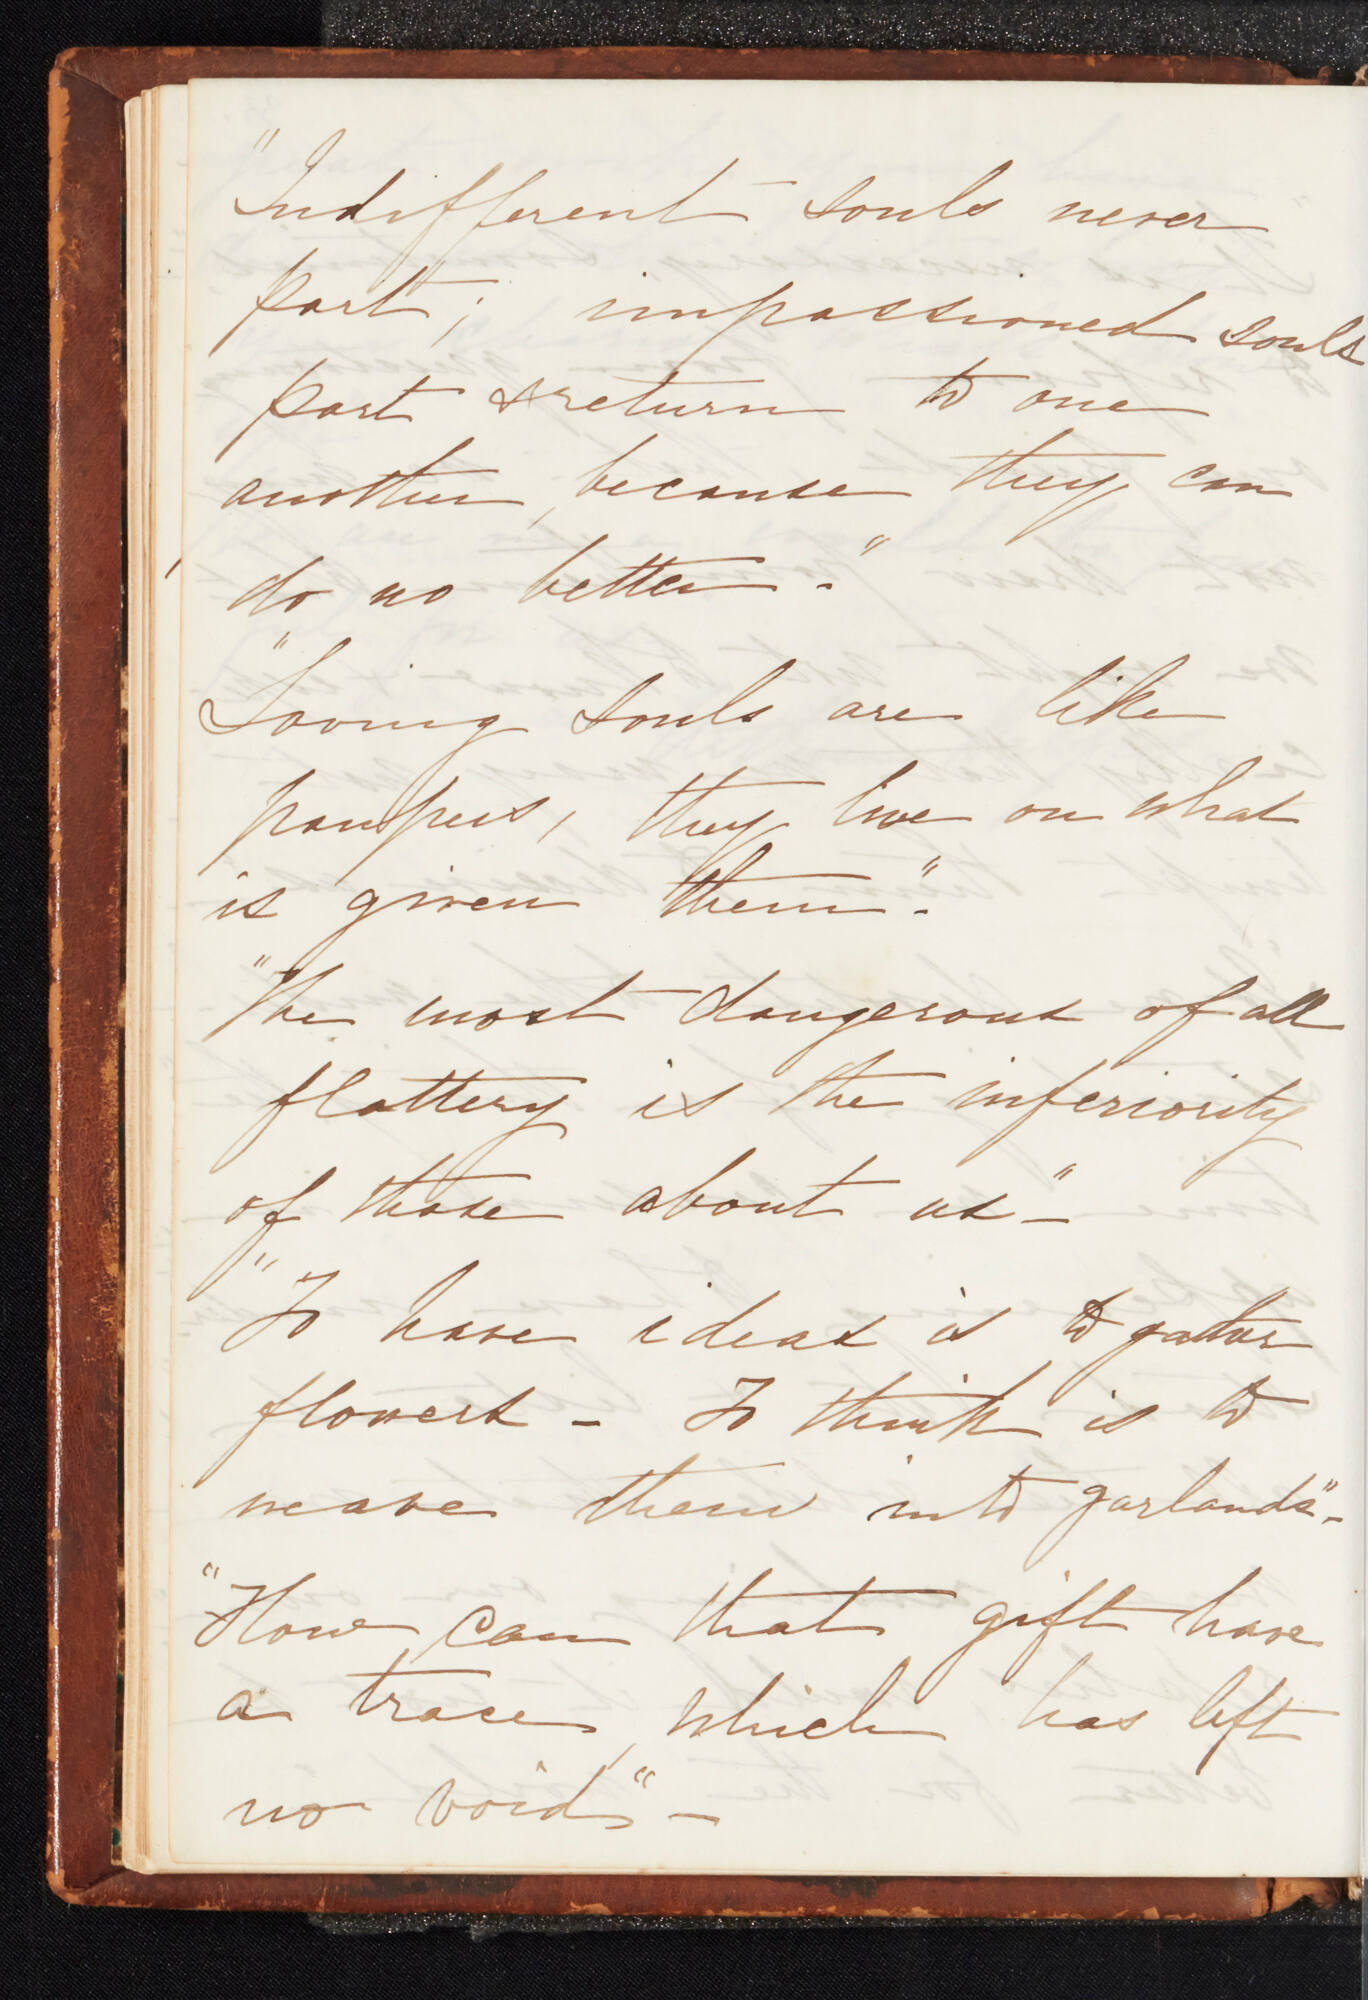 "Indifferent souls never
part; impassioned souls
part & return to one
another, because they can
do no better."
"Loving souls are like
paupers, they live on what
is given them."
"The most dangerous of all
flattery is the inferiority
of those about us"—
"To have ideas is to gather
flowers — To think is to
weave them into garlands"—
"How can that gift have
a trace, which has left
no void"—